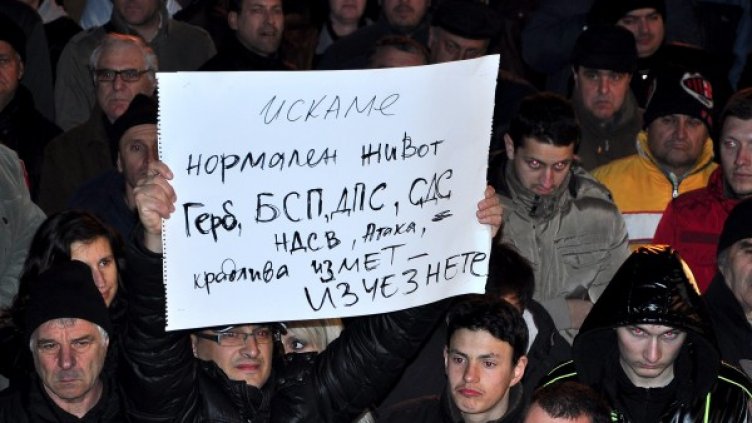 искаме
нормален живот
Герб, БСП, ДПС, СДС
НДСВ, Атака, –
крадлива измет –
изчезнете